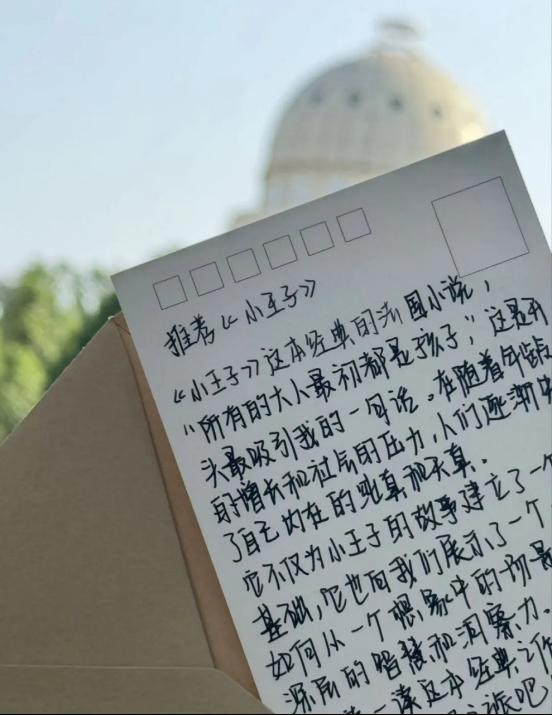 推荐《小王子》
《小王子》这本经典的法国小说，
“所有的大人最初都是孩子”，这是开
头最吸引我的一句话。在随着年龄
的增长和社会的压力，人们逐渐失
了自己内在的纯真和天真。
它不仅为小王子的故事建立了一个
基础，它也向我们展示了一个
如何从一个想象中的场景
深层的智慧和洞察力。
读一读这本经典之作
吧